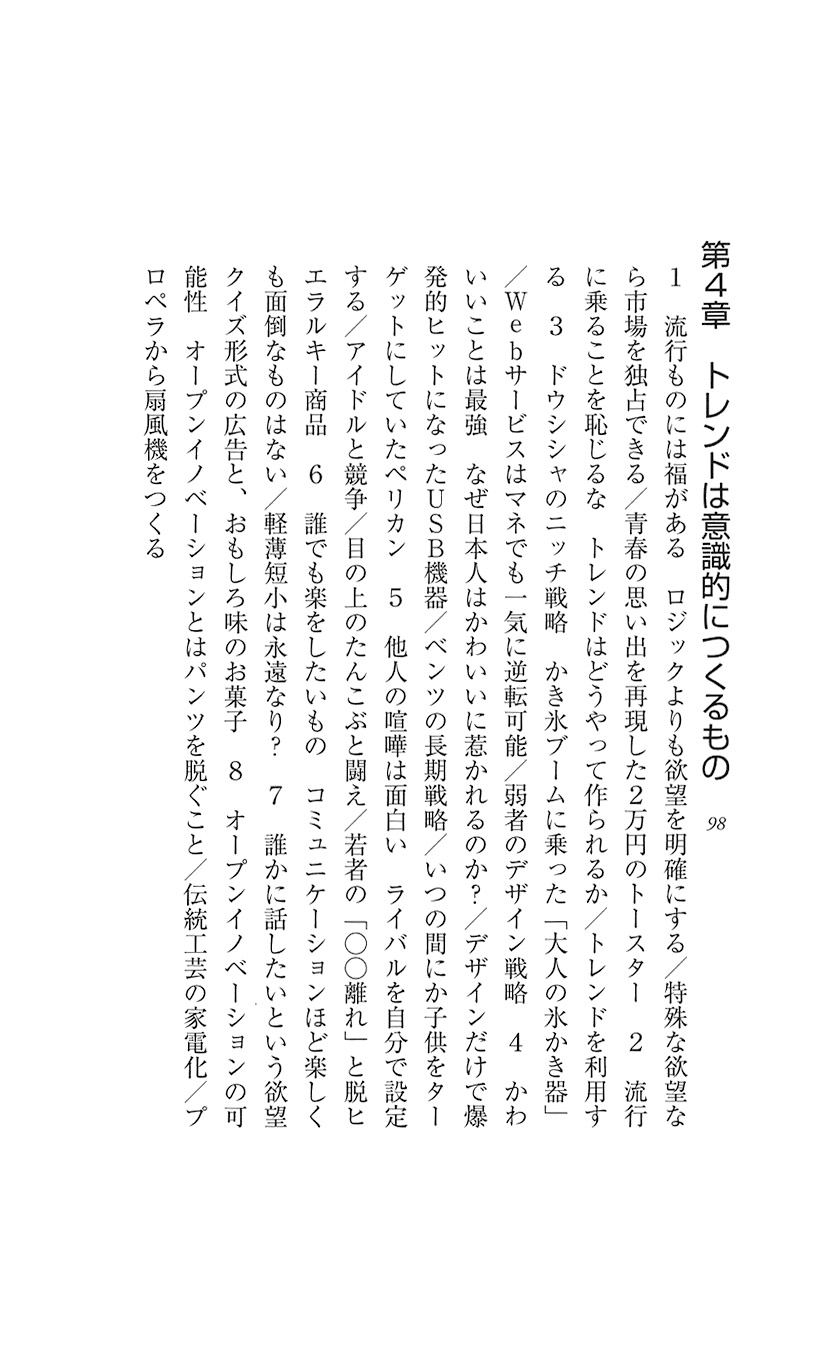 第4章　トレンドは意識的につくるもの　98
1　流行ものには福がある　ロジックよりも欲望を明確にする／特殊な欲望な
ら市場を独占できる／青春の思い出を再現した2万円のトースター　2　流行
に乗ることを恥じるな　トレンドはどうやって作られるか／トレンドを利用す
る　3　ドウシシャのニッチ戦略　かき氷ブームに乗った「大人の氷かき器」
／Webサービスはマネでも一気に逆転可能／弱者のデザイン戦略　4　かわ
いいことは最強　なぜ日本人はかわいいに惹かれるのか？／デザインだけで爆
発的ヒットになったUSB機器／ベンツの長期戦略／いつの間にか子供をター
ゲットにしていたペリカン　5　他人の喧嘩は面白い　ライバルを自分で設定
する／アイドルと競争／目の上のたんこぶと闘え／若者の「〇〇離れ」と脱ヒ
エラルキー商品　6　誰でも楽をしたいもの　コミュニケーションほど楽しく
も面倒なものはない／軽薄短小は永遠なり？　7　誰かに話したいという欲望
クイズ形式の広告と、おもしろ味のお菓子　8　オープンイノベーションの可
能性　オープンイノベーションとはパンツを脱ぐこと／伝統工芸の家電化／プ
ロペラから扇風機をつくる